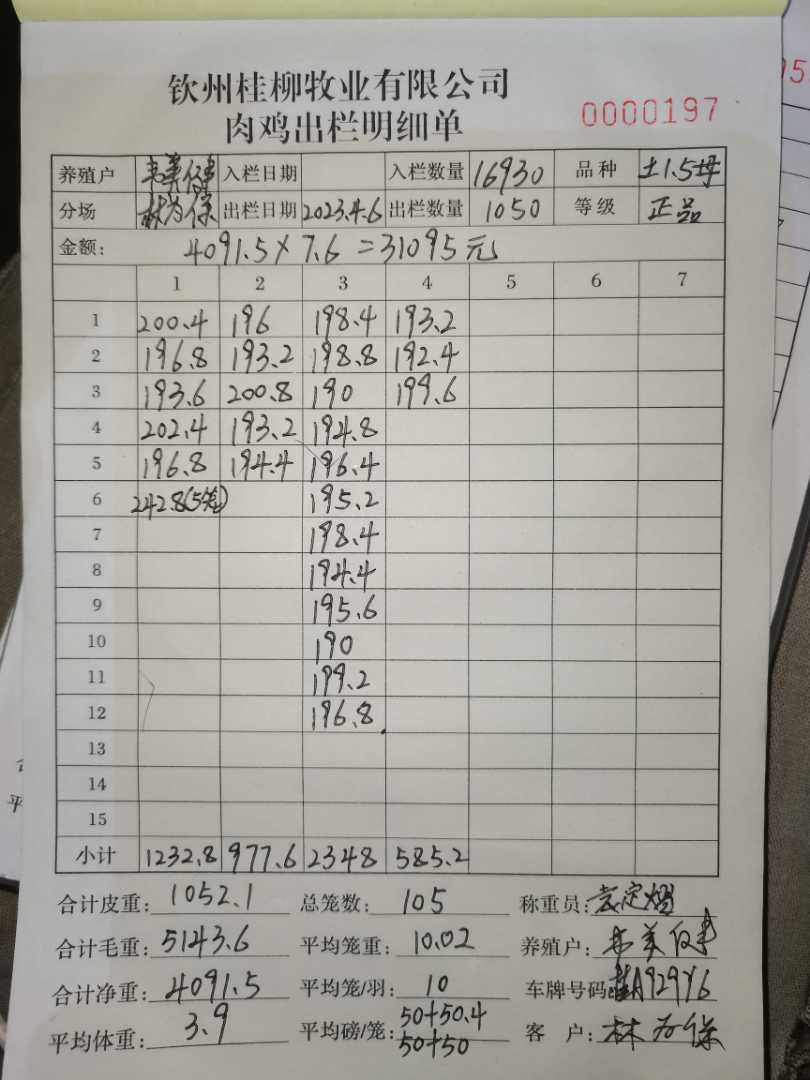 钦州桂柳牧业有限公司
肉鸡出栏明细单
0000197
养殖户 韦美健 入栏日期 入栏数量 16930 品种 土1.5母
分场 林为保 出栏日期 2023.4.6 出栏数量 1050 等级 正品
金额: 4091.5×7.6=31095元
1 2 3 4 5 6 7
1 200.4 196 198.4 193.2
2 196.8 193.2 198.8 192.4
3 193.6 200.8 190 199.6
4 202.4 193.2 194.8
5 196.8 194.4 196.4
6 242.8(5笼) 195.2
7 198.4
8 194.4
9 195.6
10 190
11 199.2
12 196.8
13
14
15
小计 1232.8 977.6 2348 585.2
合计皮重: 1052.1 总笼数: 105 称重员:
合计毛重: 5143.6 平均笼重: 10.02 养殖户: 韦美健
合计净重: 4091.5 平均笼/羽: 10 车牌号码: 桂A929Y6
平均体重: 3.9 平均磅/笼: 50+50.4 50+50 客 户: 林为保